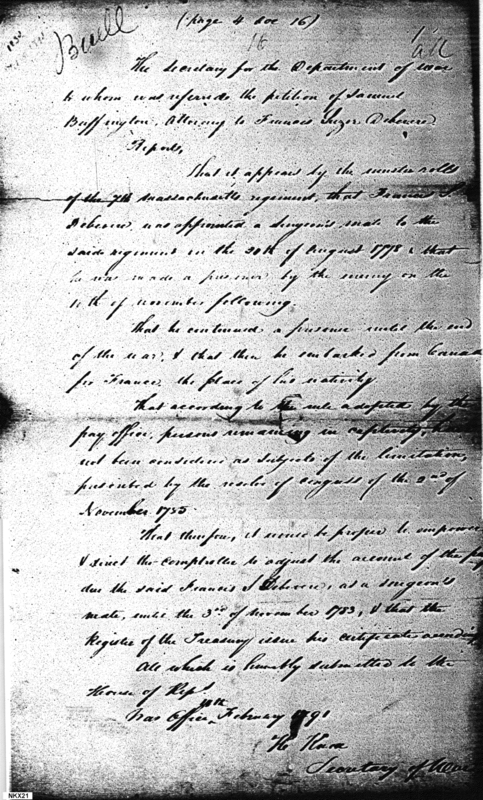 (page 4 doc 16)
Buell
16
The Secretary for the Department of war
to whom was referred the petition of Samuel
Buffington, Attorney to Francis Suzor Debevere
Reports,
That it appears by the muster rolls
of the 7th Massachusetts regiment, that Francis S
Debevere was appointed a Surgeon's mate to the
said regiment on the 20th of August 1778 & that
he was made a prisoner by the enemy on the
10th of November following.
That he continued a prisoner until the end
of the war, & that then he embarked from Canada
for France, the place of his nativity
That according to the rule adopted by the
pay office, persons remaining in captivity, have
not been considered as subjects of the limitation,
prescribed by the resolve of Congress of the 2nd of
November 1785.
That therefore, it would be proper to empower
& direct the comptroller to adjust the account of the pay
due the said Francis S Debevere, as a surgeon's
mate, until the 3rd of November 1783, & that the
Register of the Treasury issue his certificates accordingly
All which is humbly submitted to the
House of Reps
War Office, February 1791
H Knox
Secretary of War
NKX21